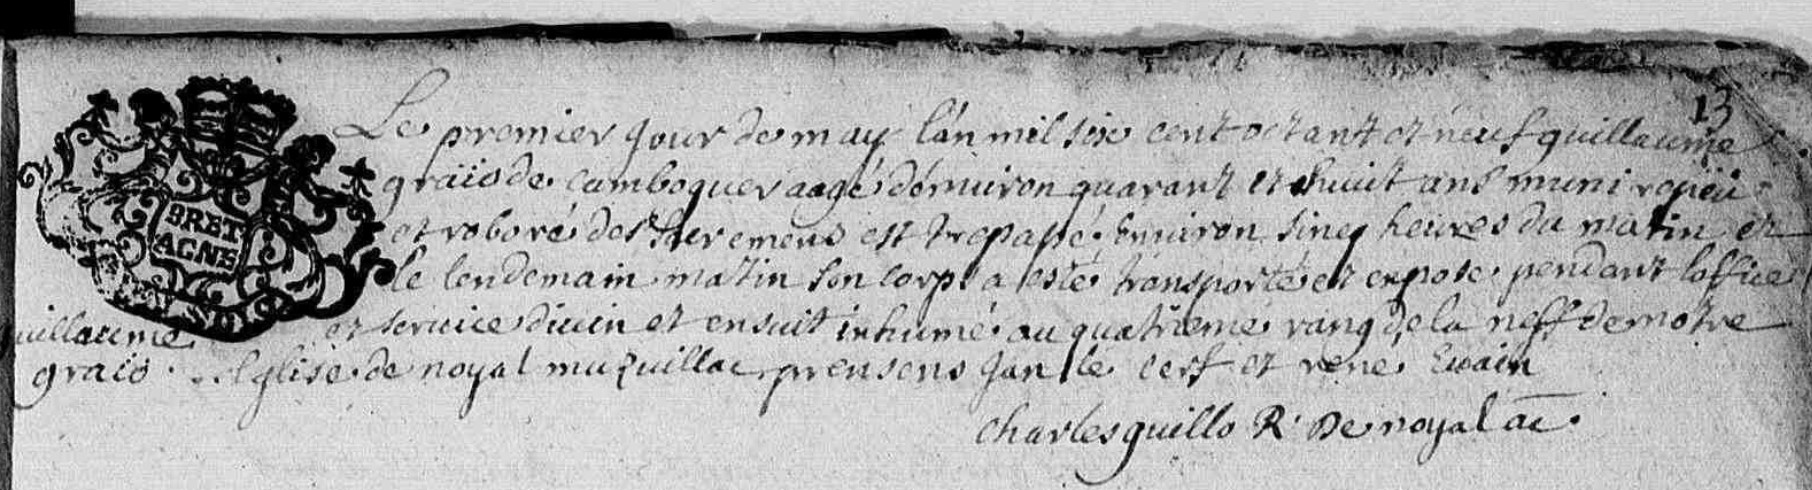 13
Le premier jour de may l'an mil six cent octant et neuf guillaume
graiio de camboquer aagé d'enuiron quarant et huit ans muni repeü
et roboré des sacremens est trepassé enuiron sinq heures du matin et
le lendemain matin son corps a esté transporté et expose pendant l'office
et seruice diuin et ensuit inhumé au quatrieme rang de la neff de notre
Eglise de noyal muzuillac presens Jan le cerf et rene Euain
charles guillo R. De noyal ac.
guillaume
graio
BRET
AGNE